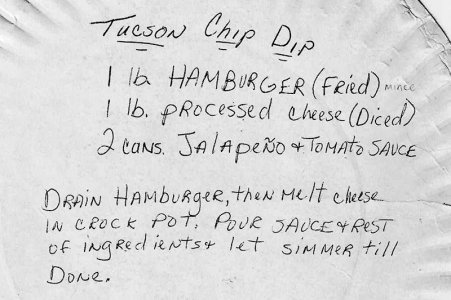 Tucson Chip Dip
1 lb. HAMBURGER (Fried) mince
1 lb. processed cheese (Diced)
2 cans. JALApeño & TOMATO SAUCE
DRAIN HAMBURGER, then Melt cheese
IN CROCK POT. POUR SAUCE & ReST
OF INgRedients & let SIMMER till
Done.